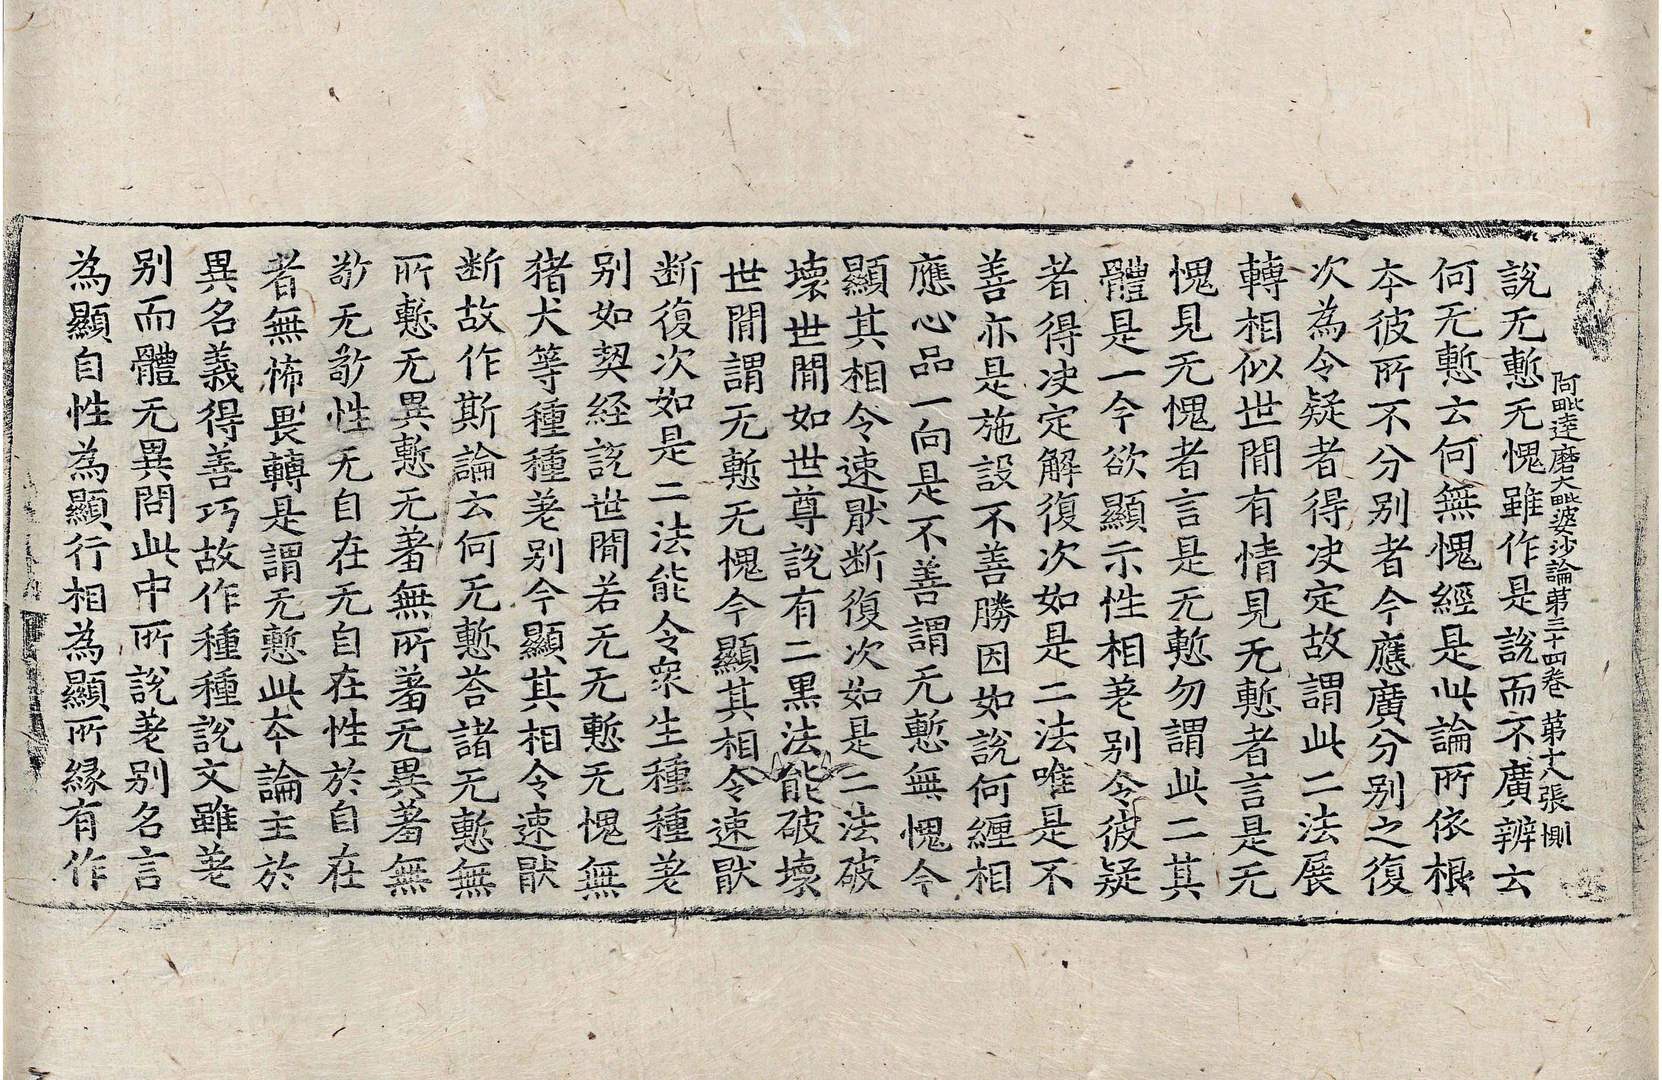 阿毗達磨大毗婆沙論第三十四卷 第十八張 惻
說无慙无愧雖作是說而不廣辨云
何无慙云何無愧經是此論所依根
夲彼所不分别者今應廣分别之復
次為令疑者得决定故謂此二法展
轉相似世間有情見无慙者言是无
愧見无愧者言是无慙勿謂此二其
體是一今欲顯示性相差别令彼疑
者得决定解復次如是二法唯是不
善亦是施設不善勝因如說何纏相
應心品一向是不善謂无慙無愧今
顯其相令速猒断復次如是二法破
壞世間如世尊說有二黑法能破壞
世間謂无慙无愧今顯其相令速猒
断復次如是二法能令衆生種種差
别如契経說世間若无无慙无愧無
猪犬等種種差别今顯其相令速猒
断故作斯論云何无慙荅諸无慙無
所慙无異慙无羞無所羞无異羞無
敬无敬性无自在无自在性於自在
者無怖畏轉是謂无慙此夲論主於
異名義得善巧故作種種說文雖差
别而體无異問此中所說差别名言
為顯自性為顯行相為顯所縁有作